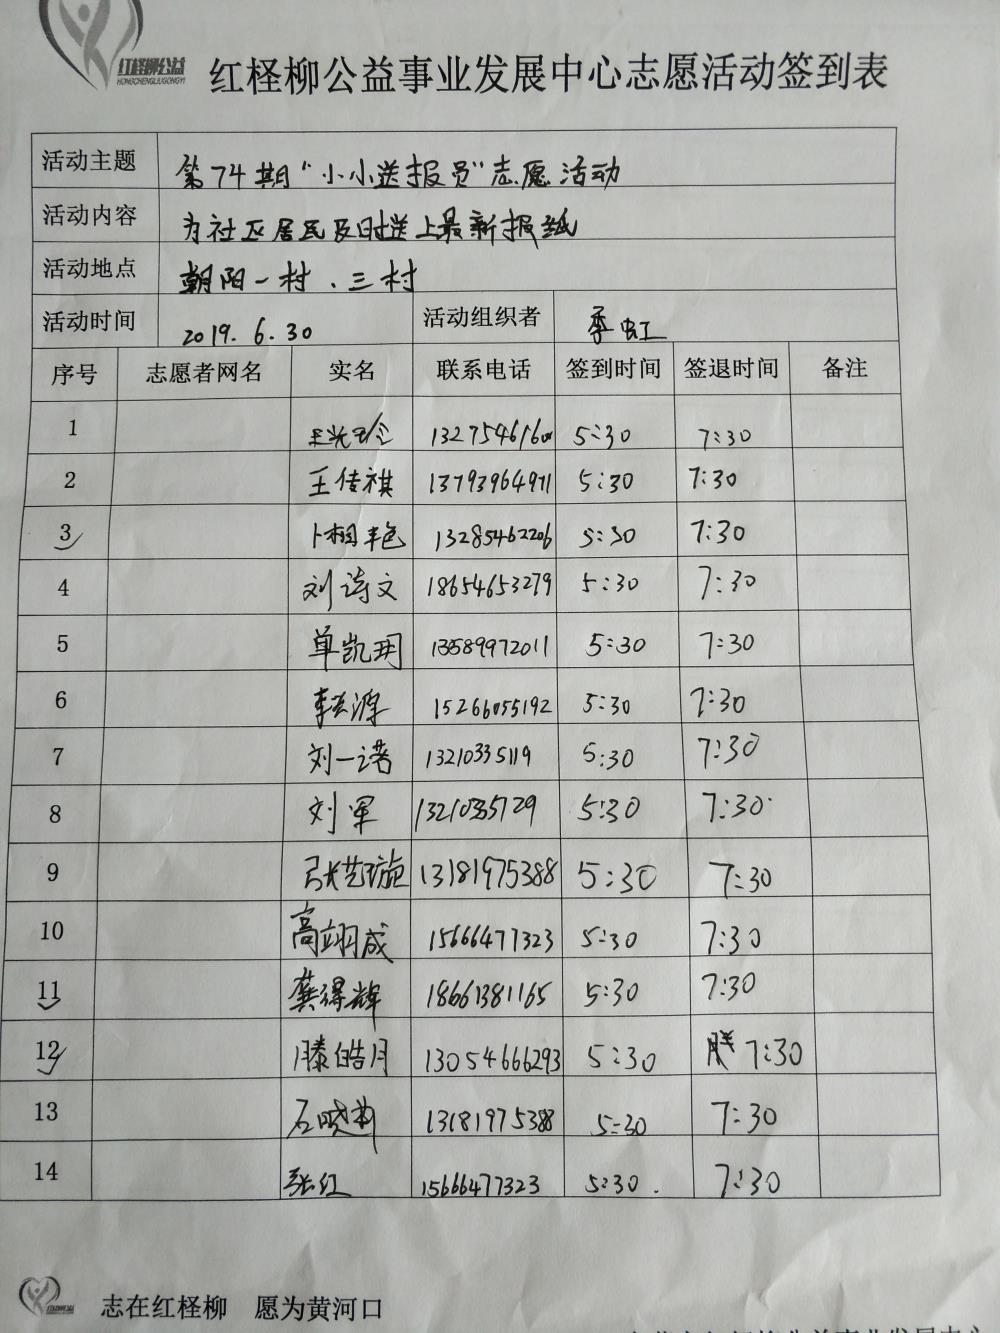 红柽柳公益
HONGCHENGLIUGONGYI
红柽柳公益事业发展中心志愿活动签到表
活动主题 第74期“小小送报员”志愿活动
活动内容 为社区居民及时送上最新报纸
活动地点 朝阳一村、三村
活动时间 2019.6.30 活动组织者 季虹
序号 志愿者网名 实名 联系电话 签到时间 签退时间 备注
1 5:30 7:30
2 王传祺 13793964971 5:30 7:30
3 卜相艳 13285462206 5:30 7:30
4 刘诗文 18654653279 5:30 7:30
5 单凯玥 13589972011 5:30 7:30
6 15266055192 5:30 7:30
7 刘一诺 13210335119 5:30 7:30
8 刘军 13210335729 5:30 7:30
9 张艺璇 13181975388 5:30 7:30
10 高翊成 15666477323 5:30 7:30
11 龚得辉 18661381165 5:30 7:30
12 滕皓月 13054666293 5:30 7:30
13 石晓莉 13181975388 5:30 7:30
14 张红 15666477323 5:30. 7:30
志在红柽柳 愿为黄河口